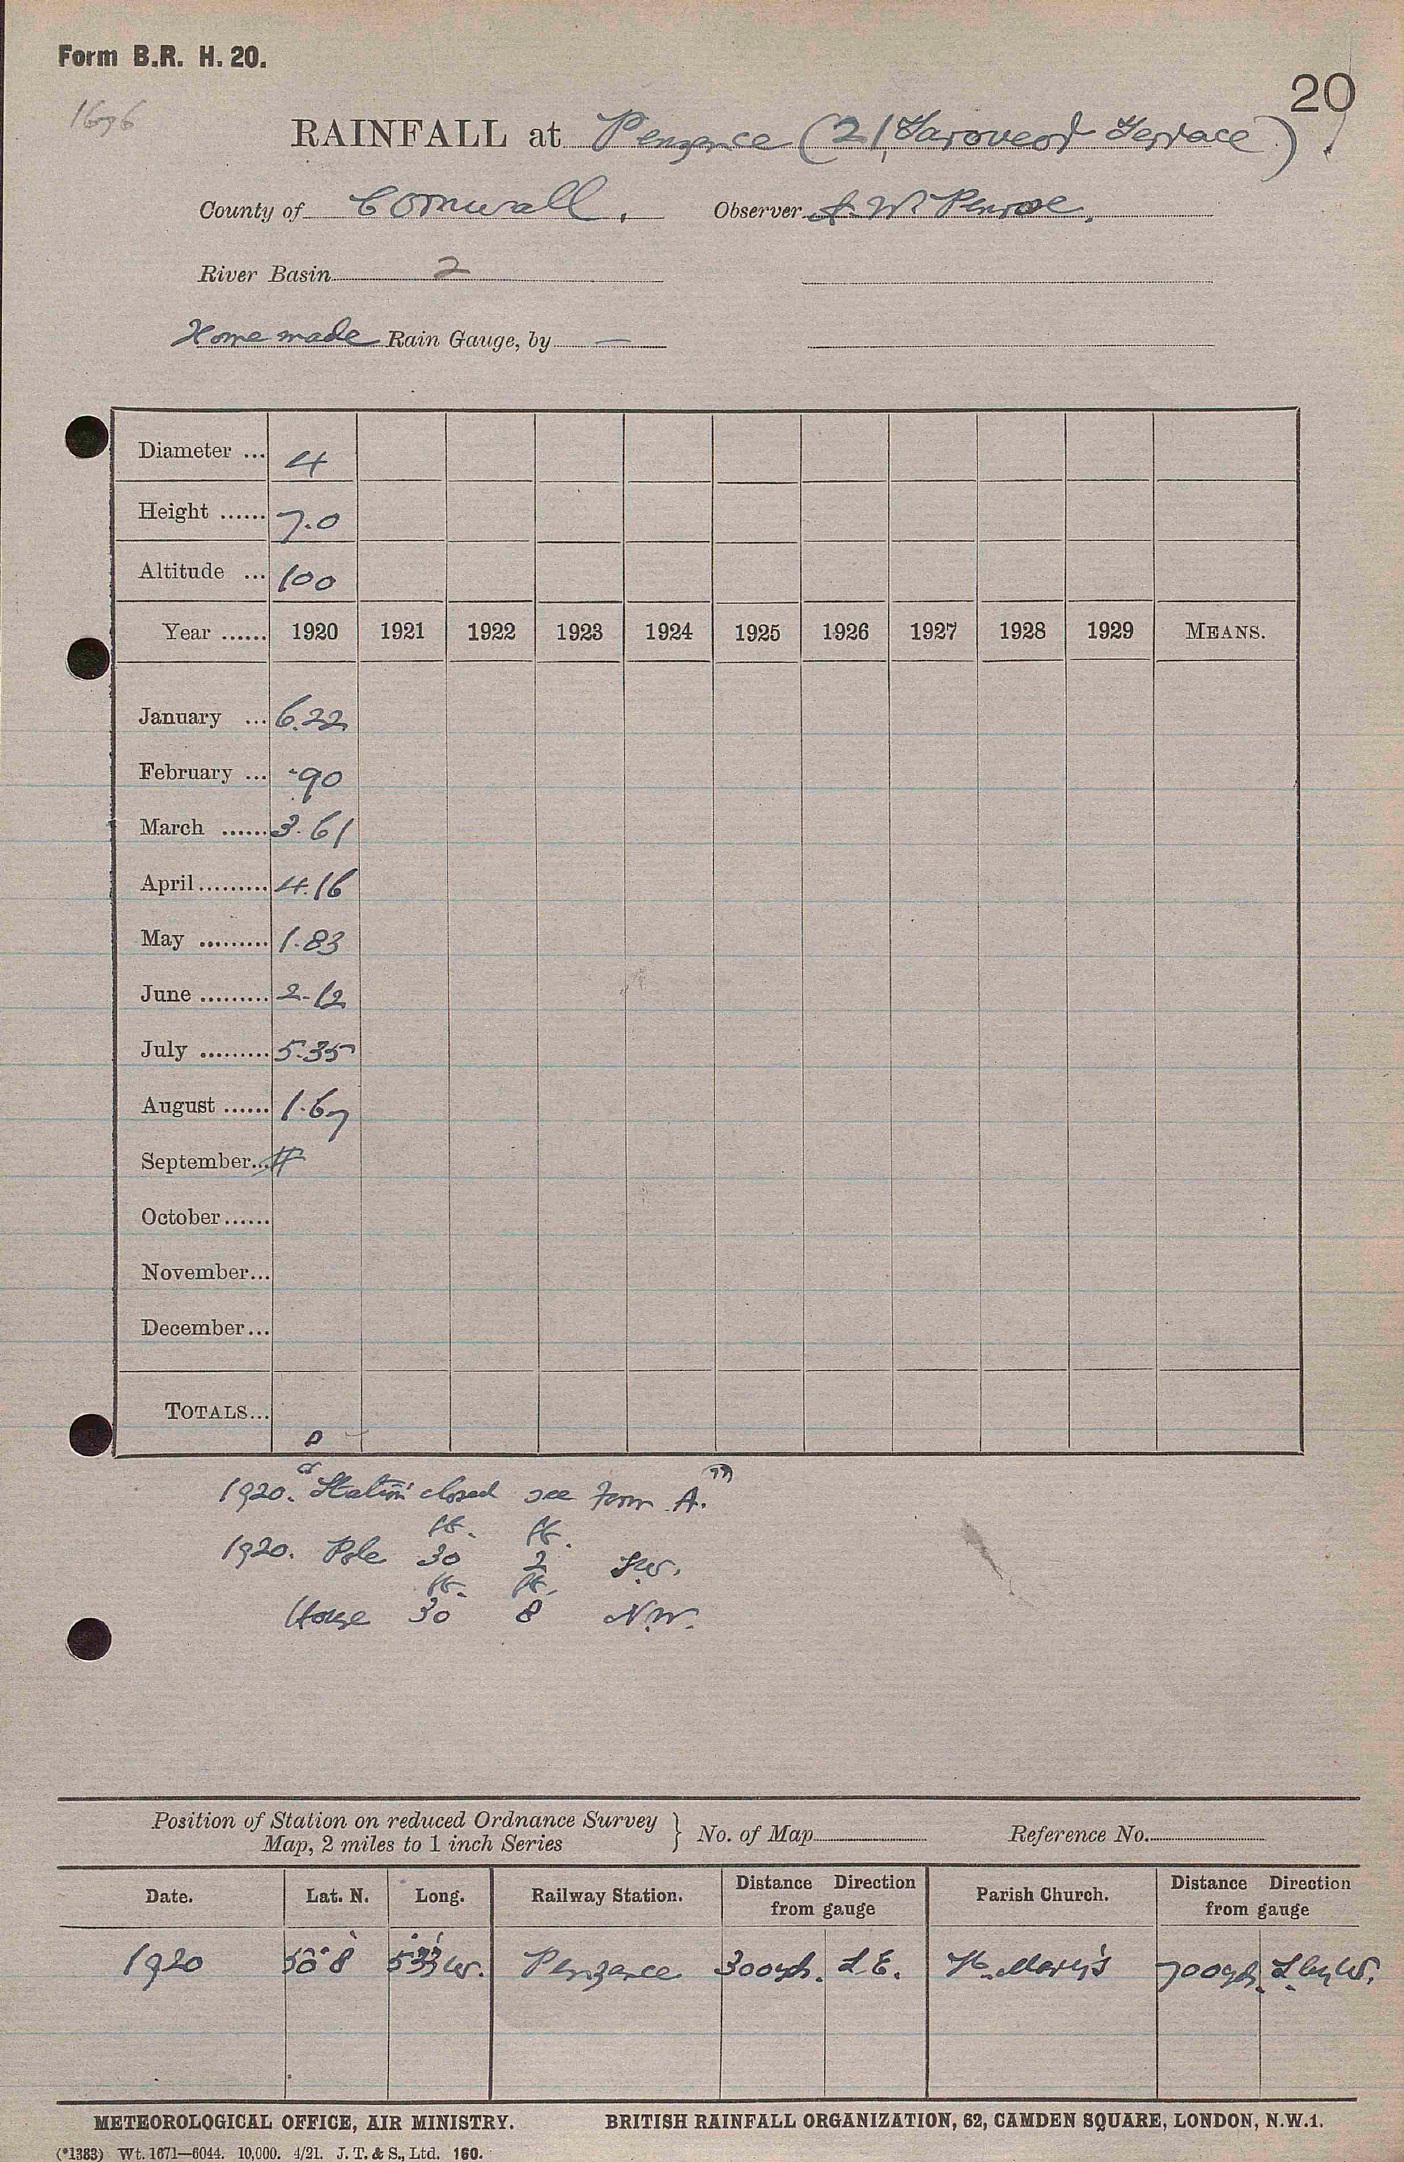 Form B.R. H. 20.
20
1676
RAINFALL at Penzance (21, Taroveor Terrace)
County of Cornwall. Observer A. W. Penrose.
River Basin 2
Home made Rain Gauge, by —
Diameter ... 4
Height ...... 7.0
Altitude ... 100
Year ...... 1920 1921 1922 1923 1924 1925 1926 1927 1928 1929 MEANS.
January ... 6.22
February ... .90
March ...... 3.61
April ......... 4.16
May ......... 1.83
June ......... 2.12
July ......... 5.35
August ...... 1.67
September...
October......
November...
December...
TOTALS...
1920. Station closed see Form A.
ft. ft.
1920. Pole 30 2 S.W.
ft. ft.
House 30 8 N.W.
Position of Station on reduced Ordnance Survey
Map, 2 miles to 1 inch Series } No. of Map Reference No.
Date. Lat. N. Long. Railway Station. Distance Direction from gauge Parish Church. Distance Direction from gauge
1920 50° 8' 5° 33' W. Penzance 300 yds. S.E. St. Mary's 700 yds. S. by W.
METEOROLOGICAL OFFICE, AIR MINISTRY. BRITISH RAINFALL ORGANIZATION, 62, CAMDEN SQUARE, LONDON, N.W.1.
(*1383) Wt. 1671—6044. 10,000. 4/21. J. T. & S., Ltd. 160.